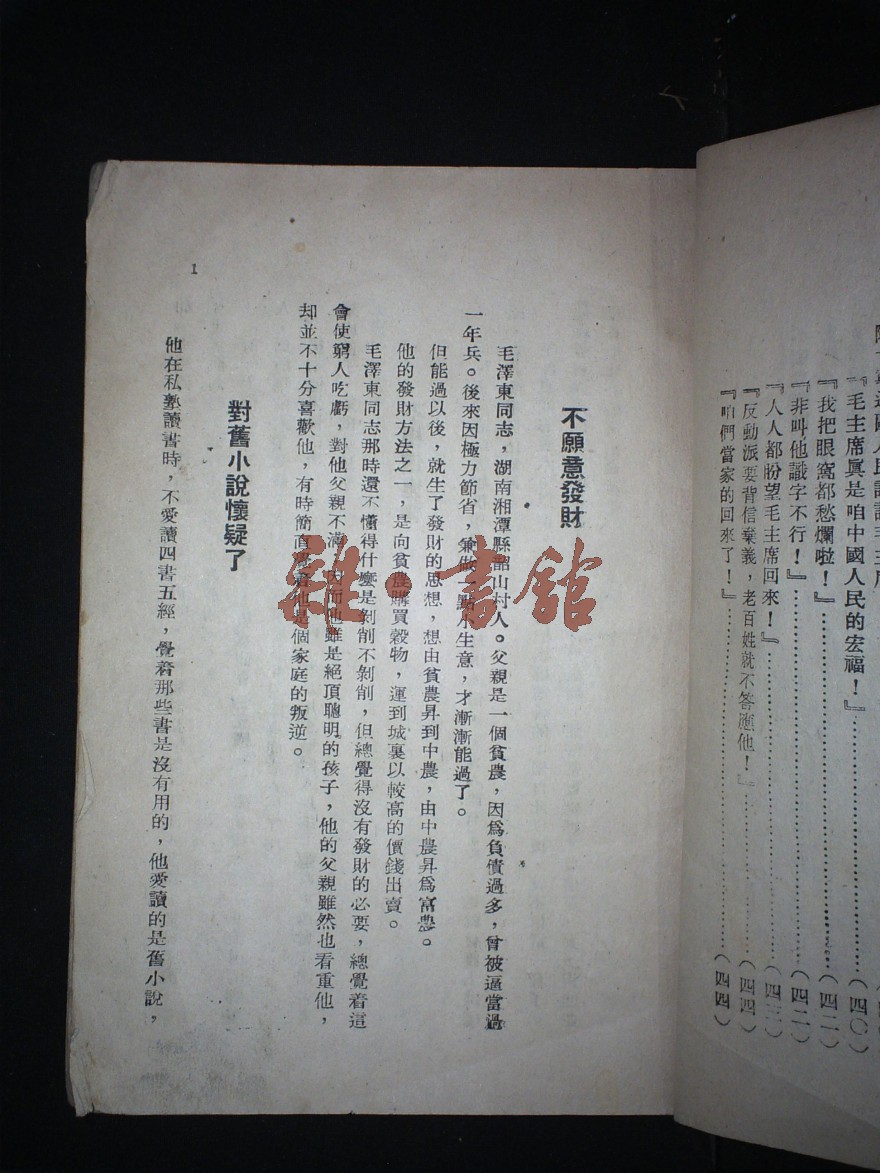 『毛主席眞是咱中國人民的宏福！』……………………（四〇）
『我把眼窩都愁爛啦！』……………………（四二）
『非叫他識字不行！』……………………（四二）
『人人都盼望毛主席回來！』……………………（四三）
『反動派要背信棄義，老百姓就不答應他！』……………………（四四）
『咱們當家的回來了！』……………………（四四）
不願意發財
毛澤東同志，湖南湘潭縣韶山村人。父親是一個貧農，因爲負債過多，曾被逼當過
一年兵。後來因極力節省，兼做一點小生意，才漸漸能過了。
但能過以後，就生了發財的思想，想由貧農昇到中農，由中農昇爲富農。
他的發財方法之一，是向貧農購買穀物，運到城裏以較高的價錢出賣。
毛澤東同志那時還不懂得什麼是剝削不剝削，但總覺得沒有發財的必要，總覺着這
會使窮人吃虧，對他父親不滿，因而他雖是絕頂聰明的孩子，他的父親雖然也看重他，
却並不十分喜歡他，有時簡直覺着他是個家庭的叛逆。
對舊小說懷疑了
他在私塾讀書時，不愛讀四書五經，覺着那些書是沒有用的，他愛讀的是舊小說，
1
雜·書舘